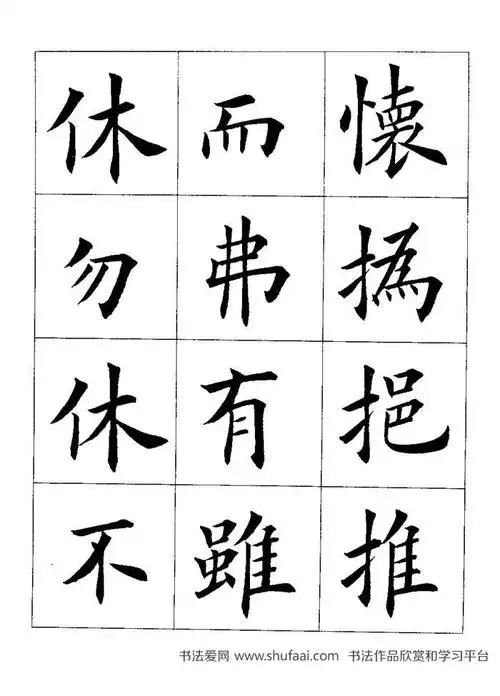 懐撝挹推
而弗有雖
休勿休不
书法爱网 www.shufaai.com 书法作品欣赏和学习平台